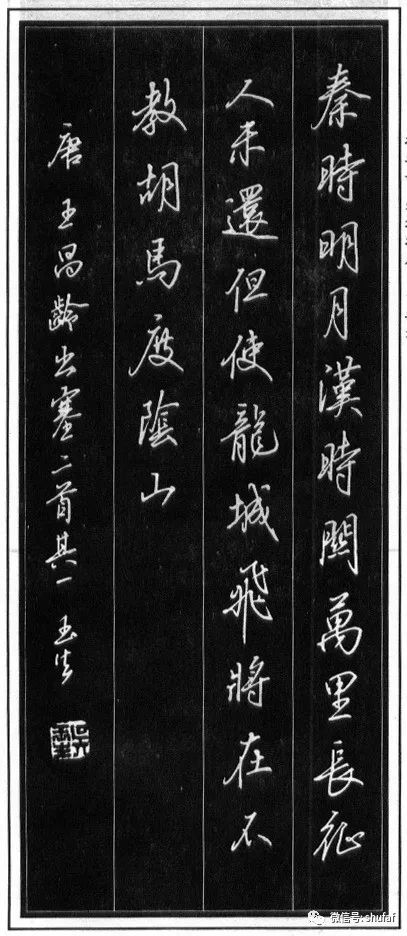 秦時明月漢時關萬里長征
人未還但使龍城飛將在不
教胡馬度陰山
唐王昌齡出塞二首其一 玉生
微信号:shufaf